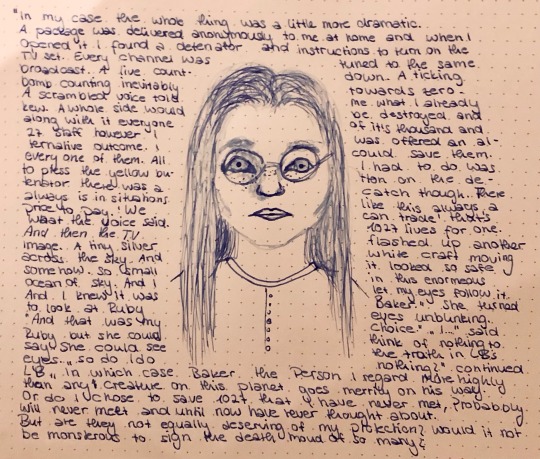 "In my case the whole thing was a little more dramatic.
A package was delivered anonymously to me at home and when I
opened it I found a detenator and instructions to turn on the
TV set. Every channel was tuned to the same
broadcast. A live count- down. A ticking
bomb counting inevitably towards zero.
A scrambled voice told me what I already
kew. A whole side would be destroyed and
along with it everyone of it's thousand and
27 staff however I was offered an al-
ternative outcome. I could save them.
every one of them. All I had to do was
to press the yellow bu- tton on the de-
tenator there was a catch though. There
always is in situations like this always a
price to pay. "We can trade" that's
waat the voice said. 1027 lives for one.
And then the TV flashed up another
image. A tiny silver white craft moving
across the sky. And it looked so safe
somehow. so small in this enormous
ocean of sky. And I let my eyes follow it.
And I knew it was Baker." She turned
to look at Ruby eyes unblinking.
"And that was my choice." "I..." said
Ruby but she could think of nothing to
say. She could see the truth in LB's
eyes. "so do I do nothing?" continued
LB "In which case Baker. the Person I regard more highly
than any creature on this planet goes merrily on his way
Or do I chose to save 1027 that I have never met, Probably
will never met and until now have never thought about.
But are they not equally deserving of my protection? would it not
be monsterous to sign the death of so many?